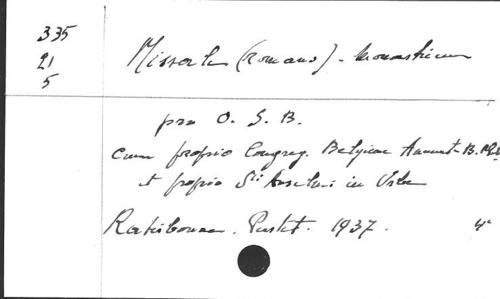 335
21
5
Missale (Romano)-Monasticum
pro O. S. B.
cum proprio Congreg. Belgicae Annunt. B.
et proprio Sti Anselmi in Urbe
Ratisbonae. Pustet. 1937. 4°